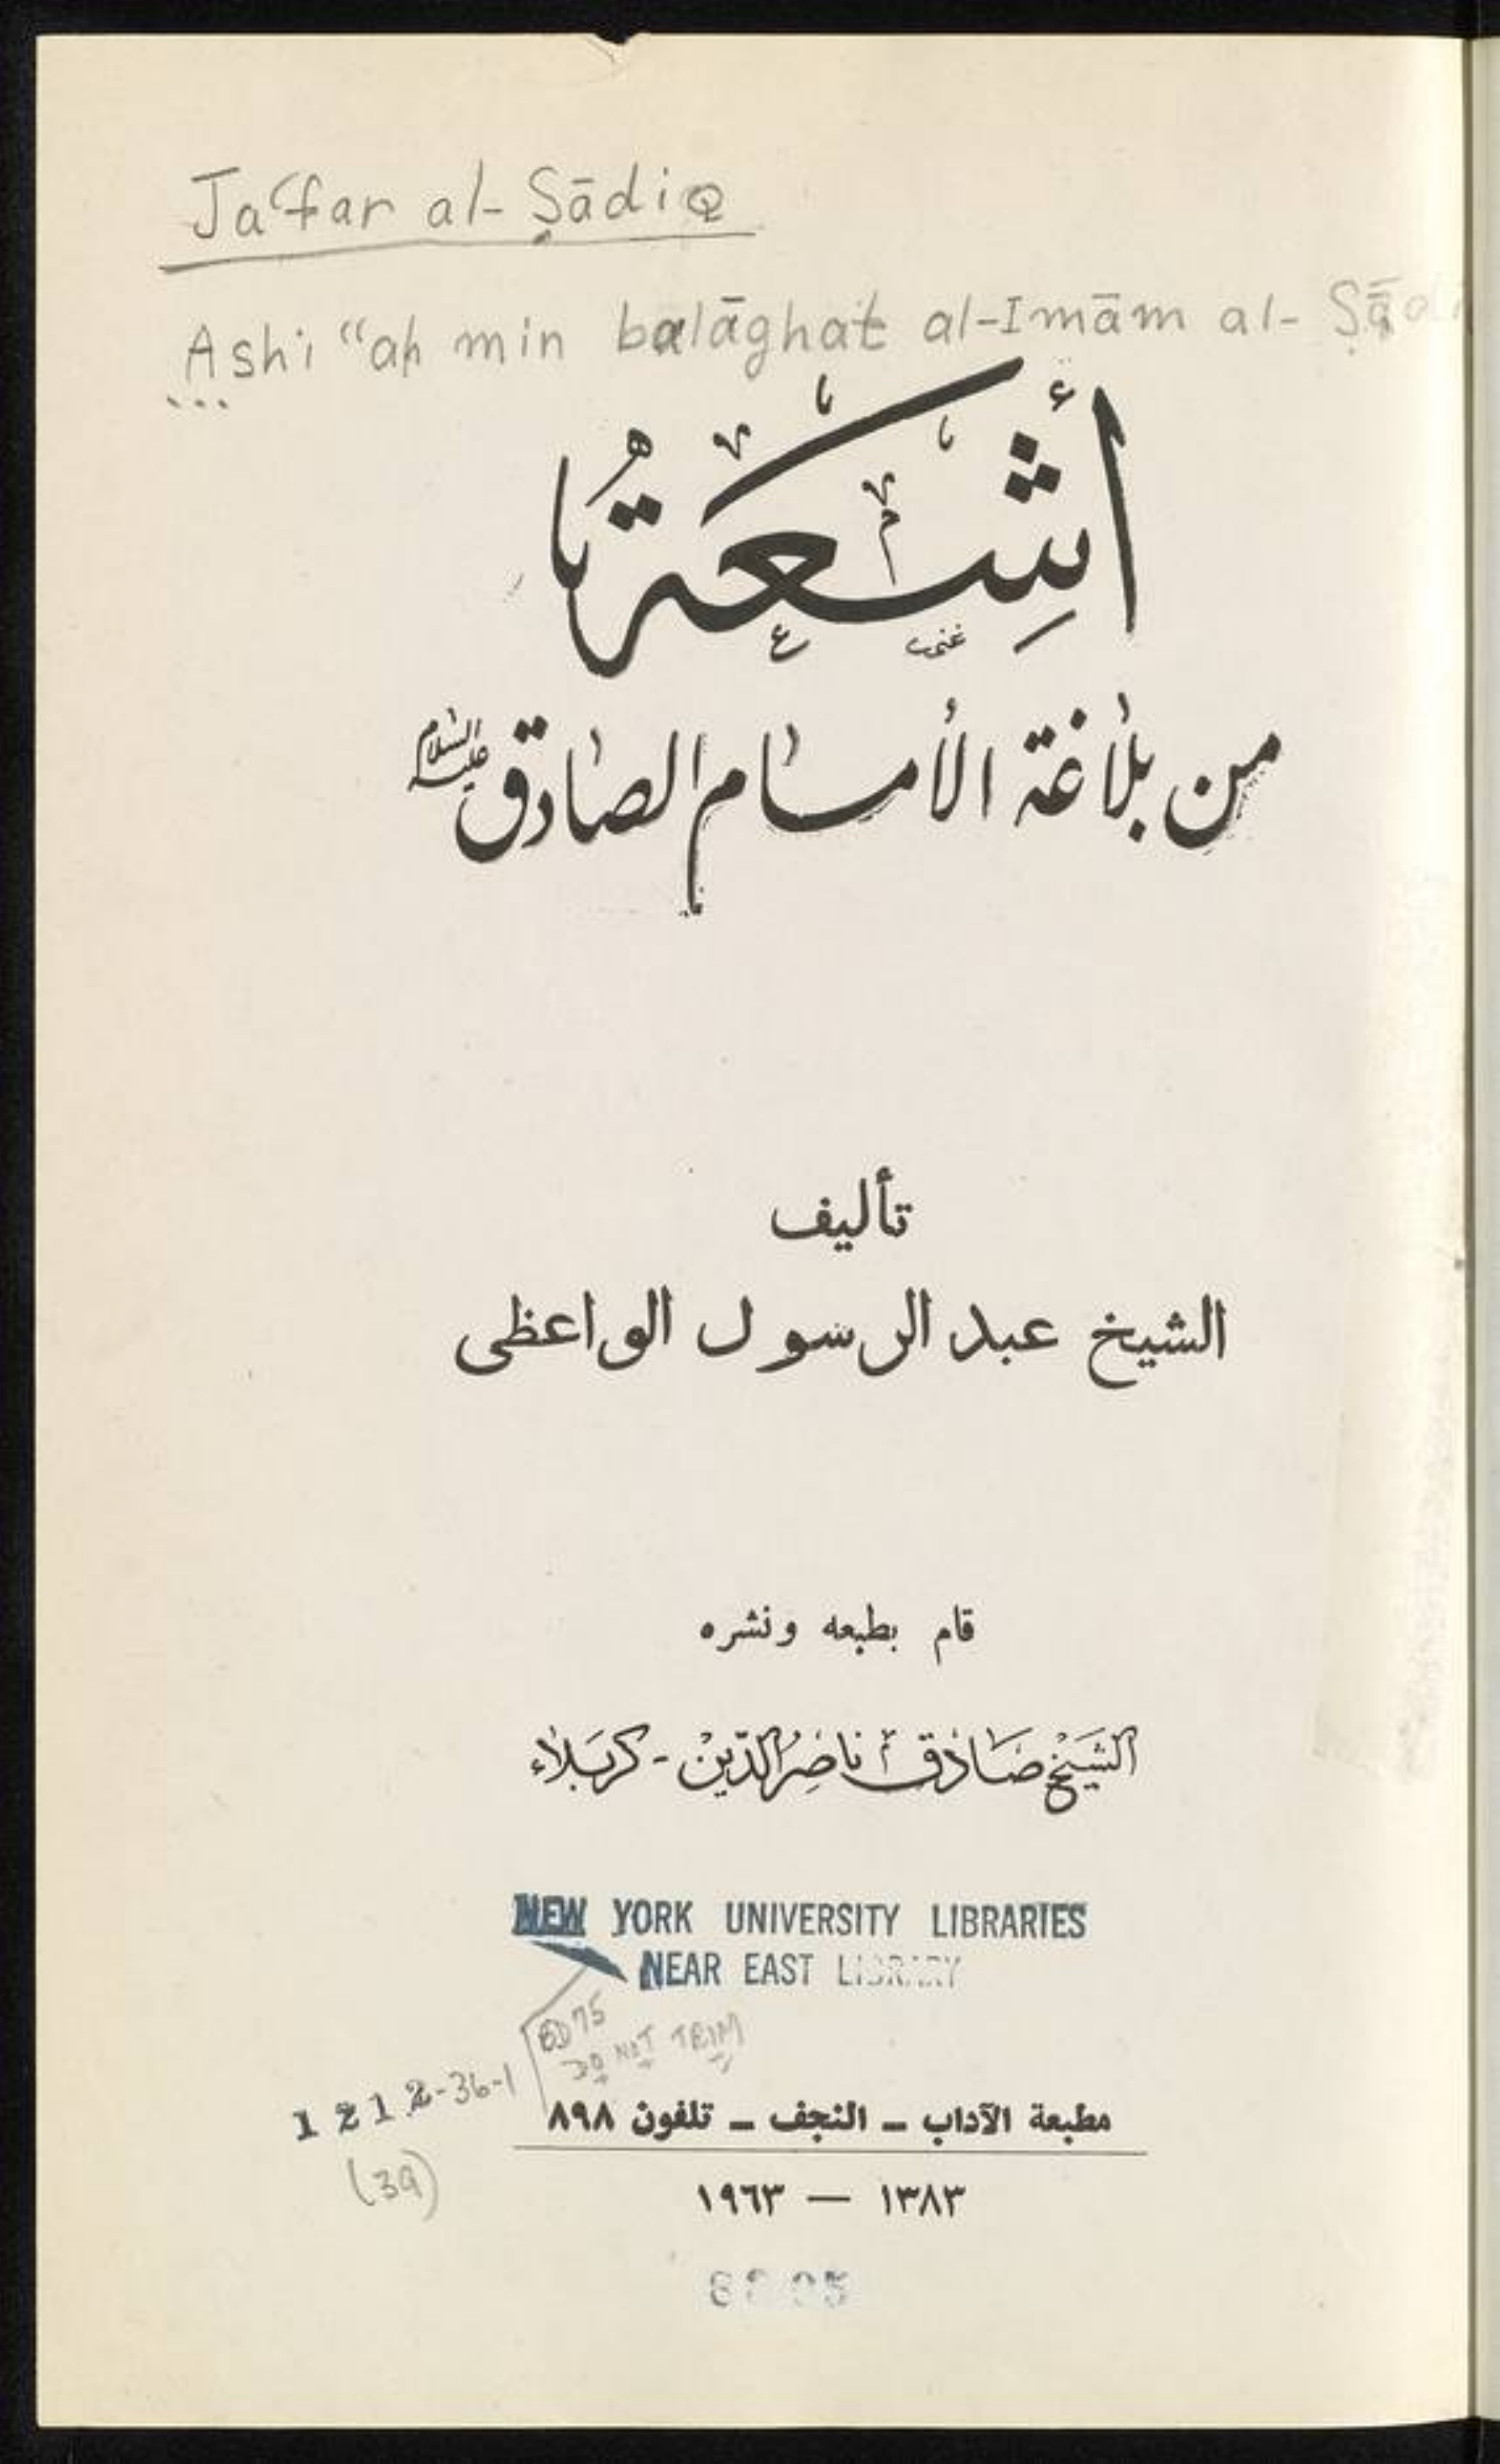 Ja‘far al-Ṣādiq
Ashi‘‘ah min balāghat al-Imām al-Ṣādi
...
أَشِعَّةٌ
من بلاغة الأمام الصادق عليه السلام
تأليف
الشيخ عبد الرسول الواعظى
قام بطبعه ونشره
الشيخ صادق ناصر الدين - كربلاء
NEW YORK UNIVERSITY LIBRARIES
NEAR EAST LIBRARY
BD 75
DO NOT TRIM
1212-36-1
مطبعة الآداب ــ النجف ــ تلفون ٨٩٨
(39)
١٣٨٣ — ١٩٦٣